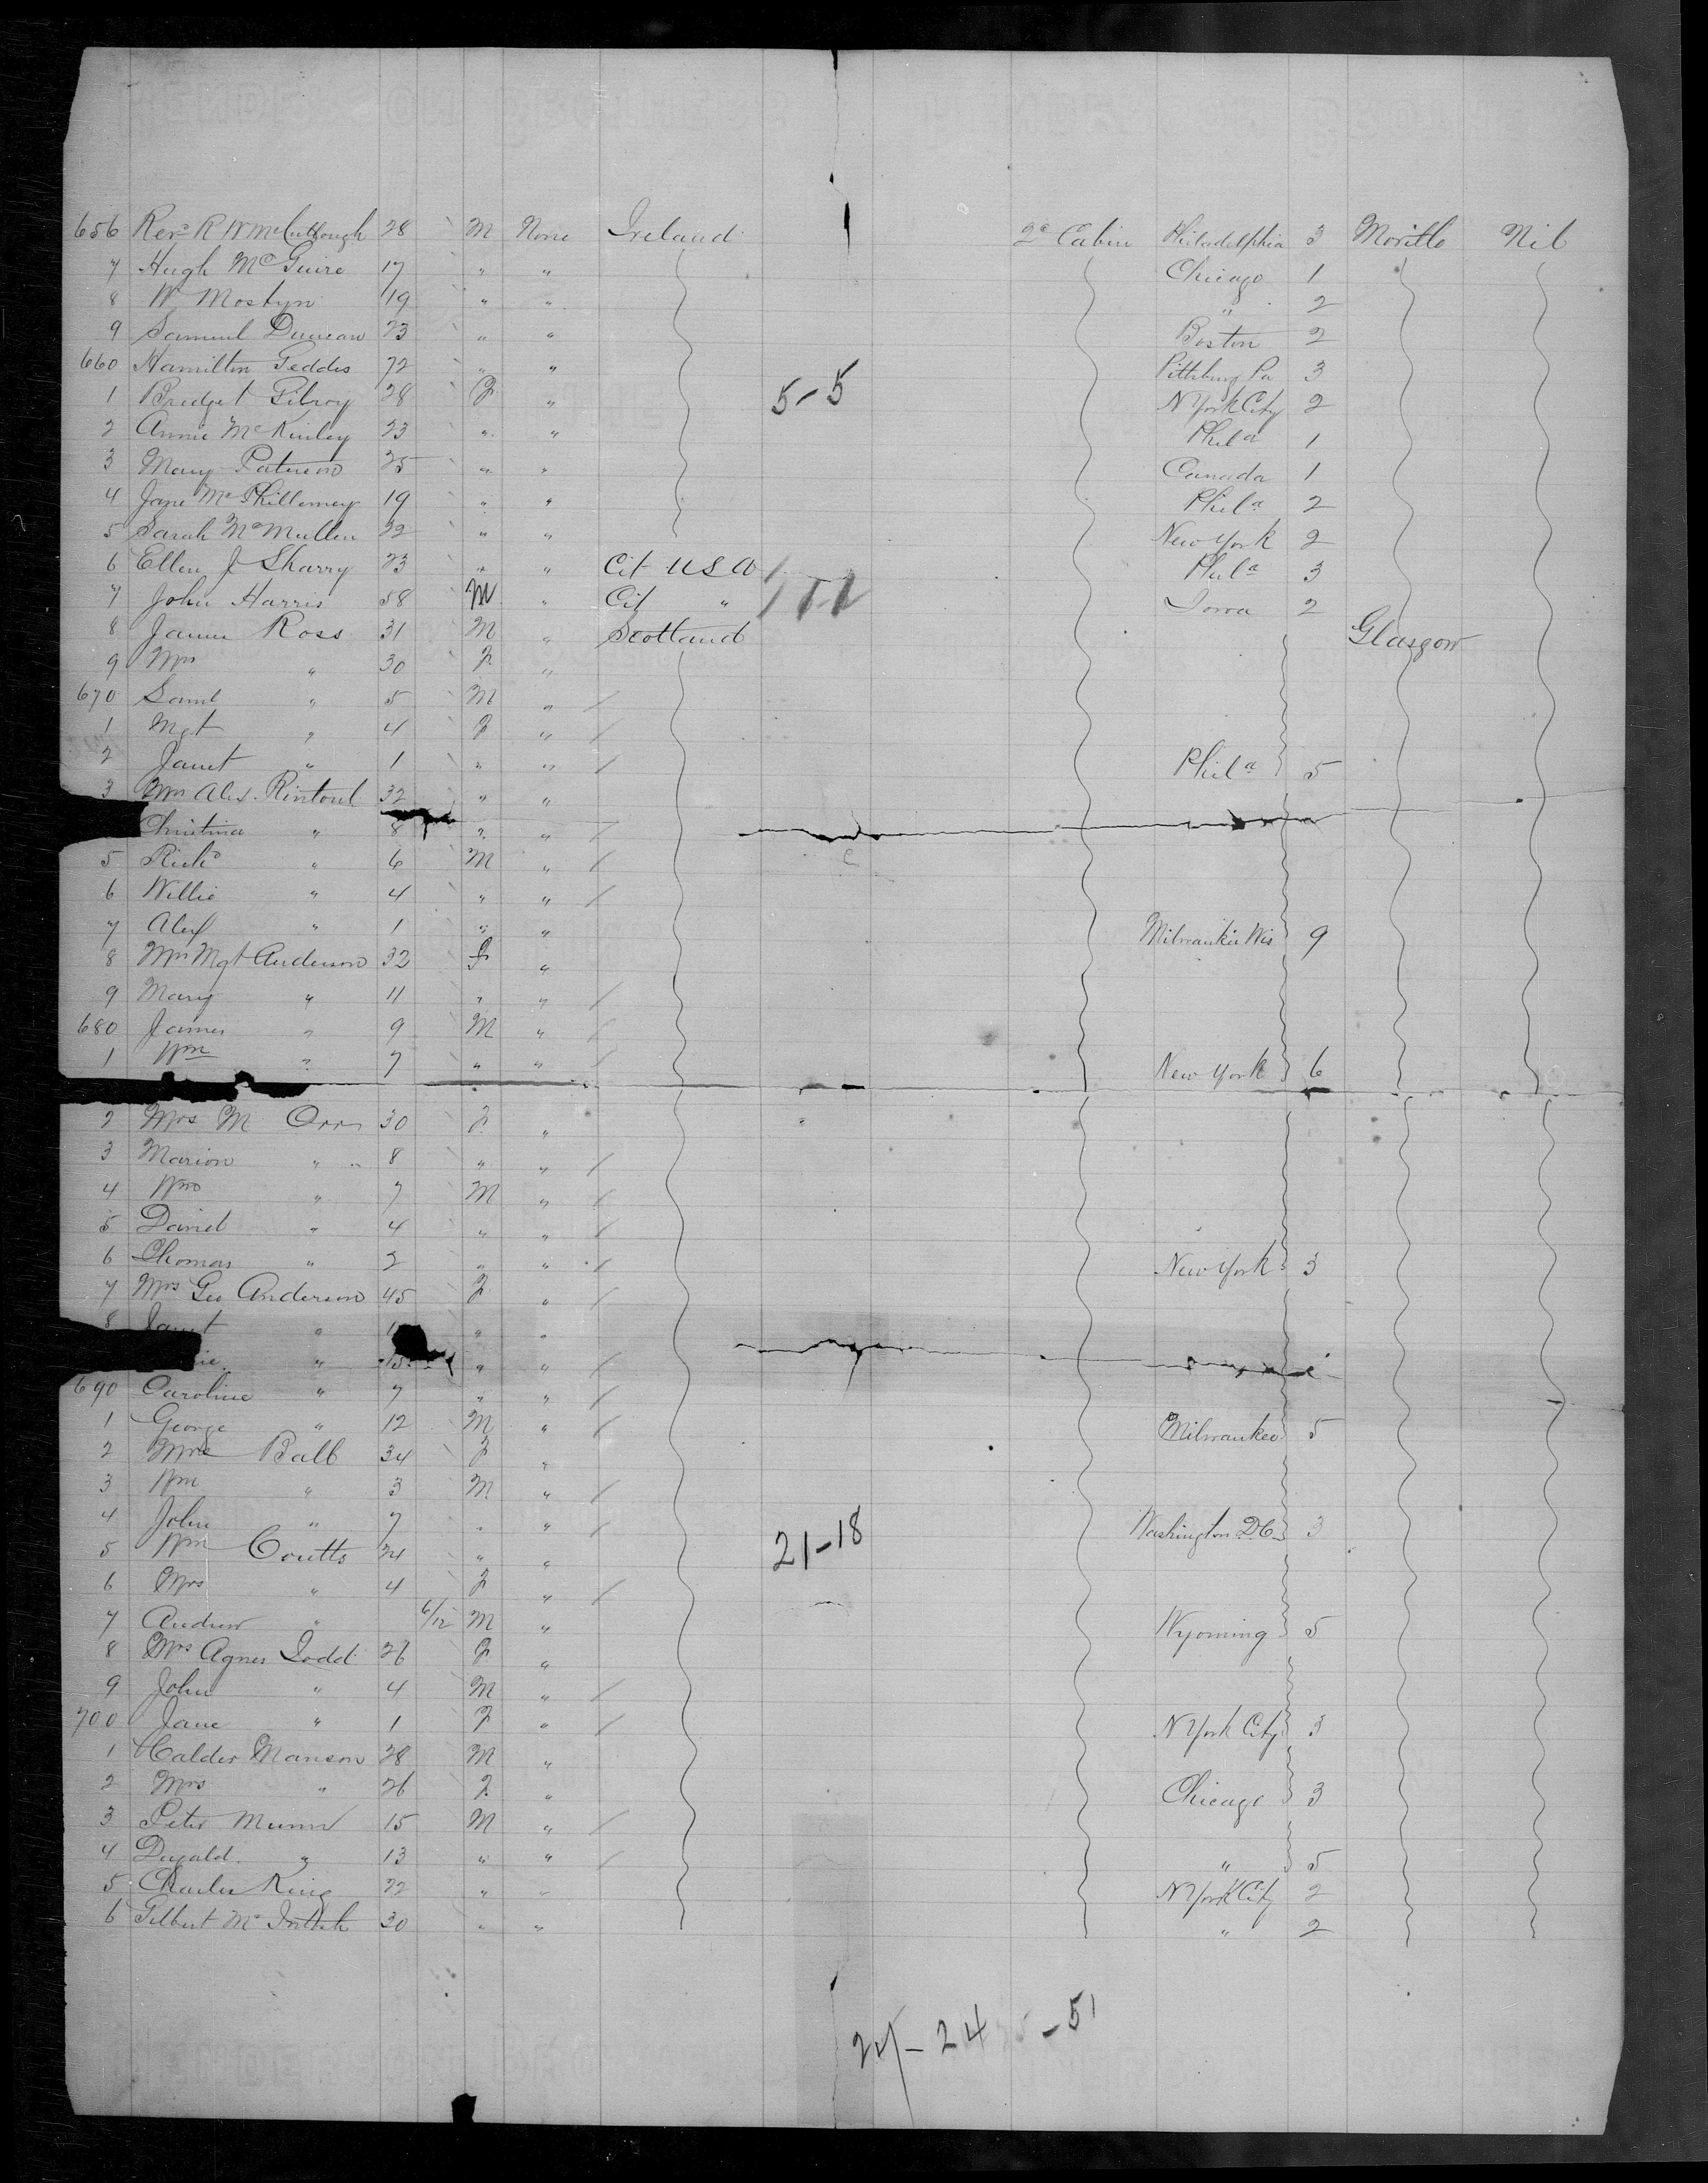 656 Revd R W McCullough 28 M None Ireland 2d Cabin Philadelphia 3 Moville Nil
7 Hugh McGuire 17 " " Chicago 1
8 W Mostyn 19 " " " 2
9 Samuel Duncan 23 " " Boston 2
660 Hamilton Geddes 72 " " Pittsburg Pa 3
1 Bridget Gilroy 28 F " N York City 2
5-5
2 Annie McKinley 23 " " Phila 1
3 Mary Paterson 25 " " Canada 1
4 Jane McPhillomey 19 " " Phila 2
5 Sarah McMullen 22 " " New York 2
6 Ellen J Sharry 23 " " Cit USA Phila 3
7 John Harris 58 M " Cit " Iowa 2
8 James Ross 31 M " Scotland Glasgow
9 Mrs " 30 F "
670 Saml " 5 M " /
1 Mgt " 4 F " /
2 Janet " 1 " " / Phila 5
3 Mrs Alex Rintoul 32 " "
Christina " 8 " " /
5 Richd " 6 M " /
6 Willie " 4 " " /
7 Alex " 1 " " Milwaukee Wis 9
8 Mrs Mgt Anderson 32 F "
9 Mary " 11 " " /
680 James " 9 M " /
1 Wm " 7 " " / New York 6
2 Mrs M Orr 30 F "
3 Marion " 8 " " /
4 Wm " 7 M " /
5 David " 4 " " /
6 Thomas " 2 " " / New York 3
7 Mrs Geo Anderson 45 F " /
8 Janet " " "
" 15 " " /
690 Caroline " 7 " " /
1 George " 12 M " / Milwaukee 5
2 Mrs Ball 34 F "
3 Wm " 3 M " /
4 John " 7 " " / Washington DC 3
21-18
5 Wm Coutts 34 " "
6 Mrs " 4 F " /
7 Andrew " 6/12 M " Wyoming 5
8 Mrs Agnes Todd 26 F "
9 John " 4 M " /
700 Jane " 1 F " / N York City 3
1 Calder Manson 28 M "
2 Mrs " 26 F " Chicago 3
3 Peter Munn 15 M " /
4 Dugald " 13 " " / " 5
5 Charles King 22 " " N York City 2
6 Gilbert McIntosh 30 " " " 2